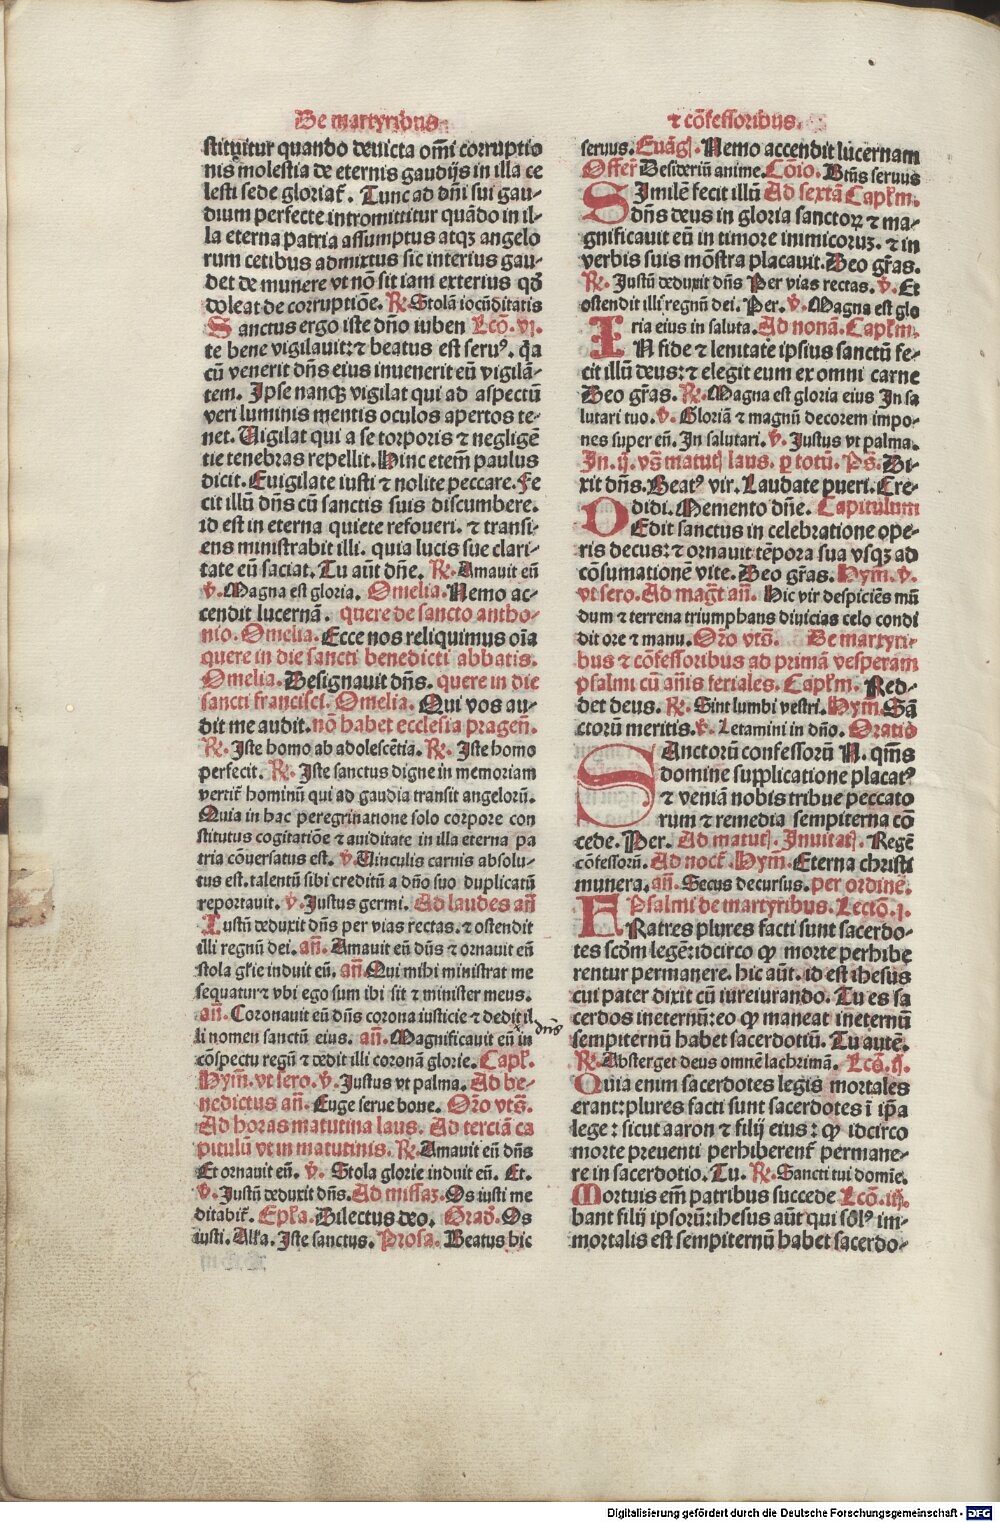 De martyribus
stituitur quando deuicta om̄i corruptio
nis molestia de eternis gaudijs in illa ce
lesti sede gloriaꝉ. Tunc ad dn̄i sui gau-
dium perfecte intromittitur quādo in il-
la eterna patria assumptus atqꝫ angelo
rum cetibus admixtus sic interius gau-
det de munere vt nō sit iam exterius qḋ
doleat de corruptiōe. ℟. Stolā iocūditatis
Sanctus ergo iste dn̄o iuben Lcō. vi.
te bene vigilauit: ⁊ beatus est seruꝰ. q̄a
cū venerit dn̄s eius inuenerit eū vigilā-
tem. Ipse nanqꝫ vigilat qui ad aspectū
veri luminis mentis oculos apertos te-
net. Uigilat qui a se torporis ⁊ negligē
tie tenebras repellit. Hinc etem̄ paulus
dicit. Euigilate iusti ⁊ nolite peccare. Fe
cit illū dn̄s cū sanctis suis discumbere.
id est in eterna quiete refoueri. ⁊ transi-
ens ministrabit illi. quia lucis sue clari-
tate eū saciat. Tu aūt dn̄e. ℟. Amauit eū
℣. Magna est gloria. Omelia. Nemo ac-
cendit lucernā. quere de sancto antho-
nio. Omelia. Ecce nos reliquimus oīa
quere in die sancti benedicti abbatis.
Omelia. Designauit dn̄s. quere in die
sancti francisci. Omelia. Qui vos au-
dit me audit. nō habet ecclesia pragen̄.
℟. Iste homo ab adolescētia. ℟. Iste homo
perfecit. ℟. Iste sanctus digne in memoriam
vertiꝉ hominū qui ad gaudia transit angelorū.
Quia in hac peregrinatione solo corpore con
stitutus cogitatiōe ⁊ auiditate in illa eterna pa
tria cōuersatus est. ℣. Uinculis carnis absolu-
tus est. talentū sibi creditū a dn̄o suo duplicatū
reportauit. ℣. Justus germi. Ad laudes an̄
Iustū deduxit dn̄s per vias rectas. ⁊ ostendit
illi regnū dei. an̄. Amauit eū dn̄s ⁊ ornauit eū
stola gl̄ie induit eū. an̄. Qui mihi ministrat me
sequatur ⁊ vbi ego sum ibi sit ⁊ minister meus.
an̄. Coronauit eū dn̄s corona iusticie ⁊ dedit il
li nomen sanctū eius. an̄. Magnificauit eū in dn̄s
cōspectu regū ⁊ dedit illi coronā glorie. Capl̄.
Hym̄. vt sero. ℣. Justus vt palma. Ad be-
nedictus an̄. Euge serue bone. Orō vts̄.
Ad horas matutina laus. Ad terciā ca
pitulū vt in matutinis. ℟. Amauit eū dn̄s
Et ornauit eū. ℣. Stola glorie induit eū. Et.
℣. Justū deduxit dn̄s. Ad missaꝫ. Os iusti me
ditabiꝉ. Epl̄a. Dilectus deo. Grad̄. Os
iusti. All̄a. Iste sanctus. Prosa. Beatus hic
⁊ cōfessoribus.
seruus. Euāḡ. Nemo accendit lucernam
Offer̄ Desideriū anime. Cōio. Btūs seruus
Similē fecit illū Ad sextā Capl̄m.
dn̄s deus in gloria sanctoꝝ ⁊ ma-
gnificauit eū in timore inimicoruꝫ. ⁊ in
verbis suis mōstra placauit. Deo gr̄as.
℟. Justū deduxit dn̄s Per vias rectas. ℣. Et
ostendit illi regnū dei. Per. ℣. Magna est glo
ria eius in saluta. Ad nonā. Capl̄m.
IN fide ⁊ lenitate ipsius sanctū fe-
cit illū deus: ⁊ elegit eum ex omni carne
Deo gr̄as. ℟. Magna est gloria eius In sa
lutari tuo. ℣. Gloriā ⁊ magnū decorem impo-
nes super eū. In salutari. ℣. Justus vt palma.
In. ij. vs̄ matuꝉ laus. ꝑ totū. Ps̄. Di-
xit dn̄s. Beatꝰ vir. Laudate pueri. Cre-
didi. Memento dn̄e. Capitulum
DEdit sanctus in celebratione ope-
ris decus: ⁊ ornauit tēpora sua vsqꝫ ad
cōsumationē vite. Deo gr̄as. Hym̄. ℣.
vt sero. Ad maḡt an̄. Hic vir despiciēs mū
dum ⁊ terrena triumphans diuicias celo condi
dit ore ⁊ manu. Orō vts̄. De martyri-
bus ⁊ cōfessoribus ad primā vesperam
psalmi cū an̄is feriales. Capl̄m. Red-
det deus. ℟. Sint lumbi vestri. Hym̄. Sā
ctorū meritis. ℣. Letamini in dn̄o. Oratio
SAnctorū confessorū N. qm̄s
domine supplicatione placatꝰ
⁊ veniā nobis tribue peccato
rum ⁊ remedia sempiterna cō
cede. Per. Ad matuꝉ. Inuitaꝉ. Regē
cōfessorū. Ad nocꝉ. Hym̄. Eterna christi
munera. an̄. Secus decursus. per ordinē.
Psalmi de martyribus. Lectiō. j.
FRatres plures facti sunt sacerdo-
tes scd̄m legē: idcirco ꝙ morte perhibe
rentur permanere. hic aūt. id est ihesus
cui pater dixit cū iureiurando. Tu es sa
cerdos ineternū: eo ꝙ maneat ineternū
sempiternū habet sacerdotiū. Tu autē.
℟. Absterget deus omnē lachrimā. Lcō. ij.
Quia enim sacerdotes legis mortales
erant: plures facti sunt sacerdotes ī ip̄a
lege: sicut aaron ⁊ filij eius: ꝙ idcirco
morte preuenti perhiberenꝉ permane-
re in sacerdotio. Tu. ℟. Sancti tui domīe.
Mortuis em̄ patribus succede Lcō. iij.
bant filij ipsorū: ihesus aūt qui sōlꝰ im-
mortalis est sempiternū habet sacerdo-
Digitalisierung gefördert durch die Deutsche Forschungsgemeinschaft - DFG